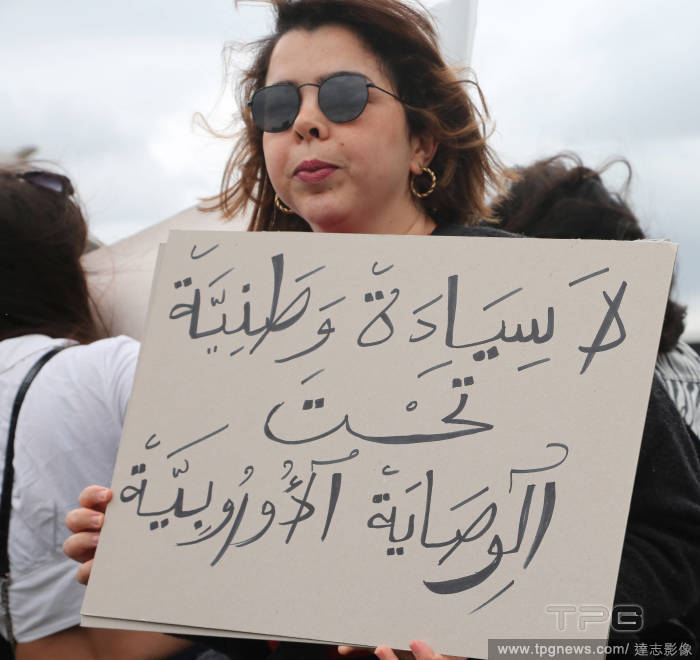 لَا سِيَادَةَ وَطَنِيَّة
تَحْتَ
الوِصَايَةِ الأُورُوبِيَّة
TPG
www.tpgnews.com/ 達志影像